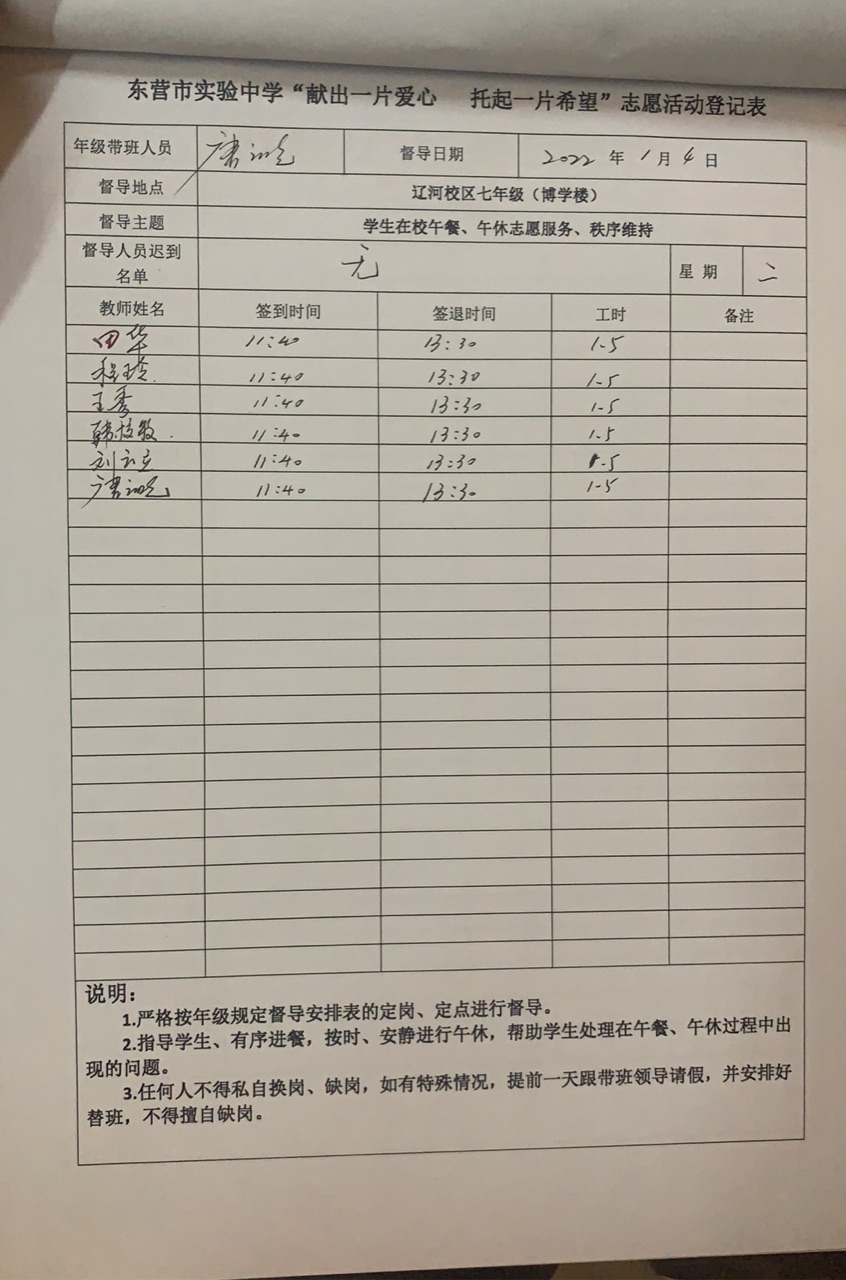 东营市实验中学“献出一片爱心 托起一片希望”志愿活动登记表
年级带班人员 督导日期 2022 年 1 月 4 日
督导地点 辽河校区七年级（博学楼）
督导主题 学生在校午餐、午休志愿服务、秩序维持
督导人员迟到名单 无 星期 二
教师姓名 签到时间 签退时间 工时 备注
田华 11:40 13:30 1.5
程玲 11:40 13:30 1.5
王秀 11:40 13:30 1.5
11:40 13:30 1.5
刘立 11:40 13:30 1.5
11:40 13:30 1.5
说明：
1.严格按年级规定督导安排表的定岗、定点进行督导。
2.指导学生、有序进餐，按时、安静进行午休，帮助学生处理在午餐、午休过程中出
现的问题。
3.任何人不得私自换岗、缺岗，如有特殊情况，提前一天跟带班领导请假，并安排好
替班，不得擅自缺岗。